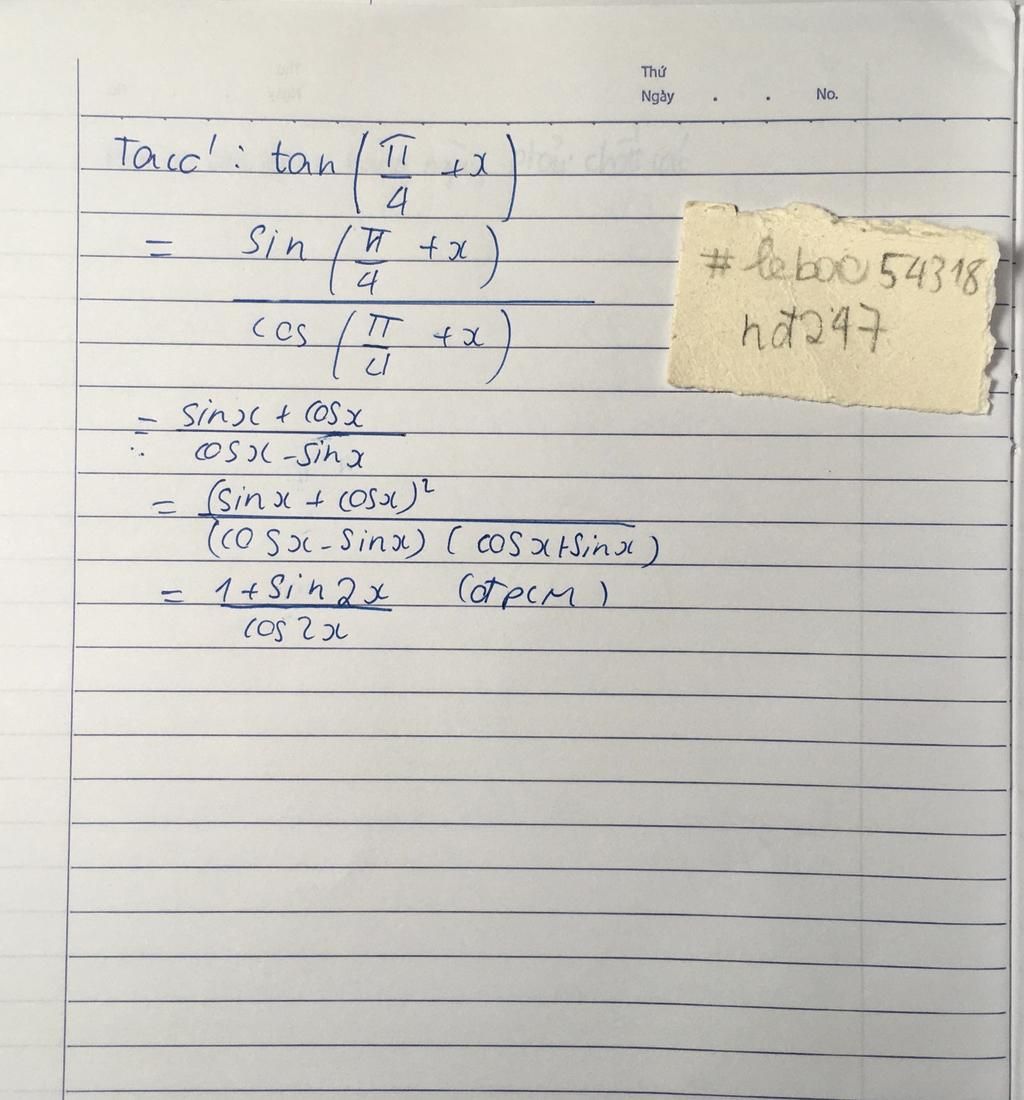 Thứ
Ngày . . No.
Ta có: tan(π/4 + x)
= sin(π/4 + x)
cos(π/4 + x)
= sinx + cosx
cosx - sinx
= (sinx + cosx)²
(cosx - sinx) (cosx + sinx)
= 1 + sin2x (đpcm)
cos2x
#leboo54318
nđ247